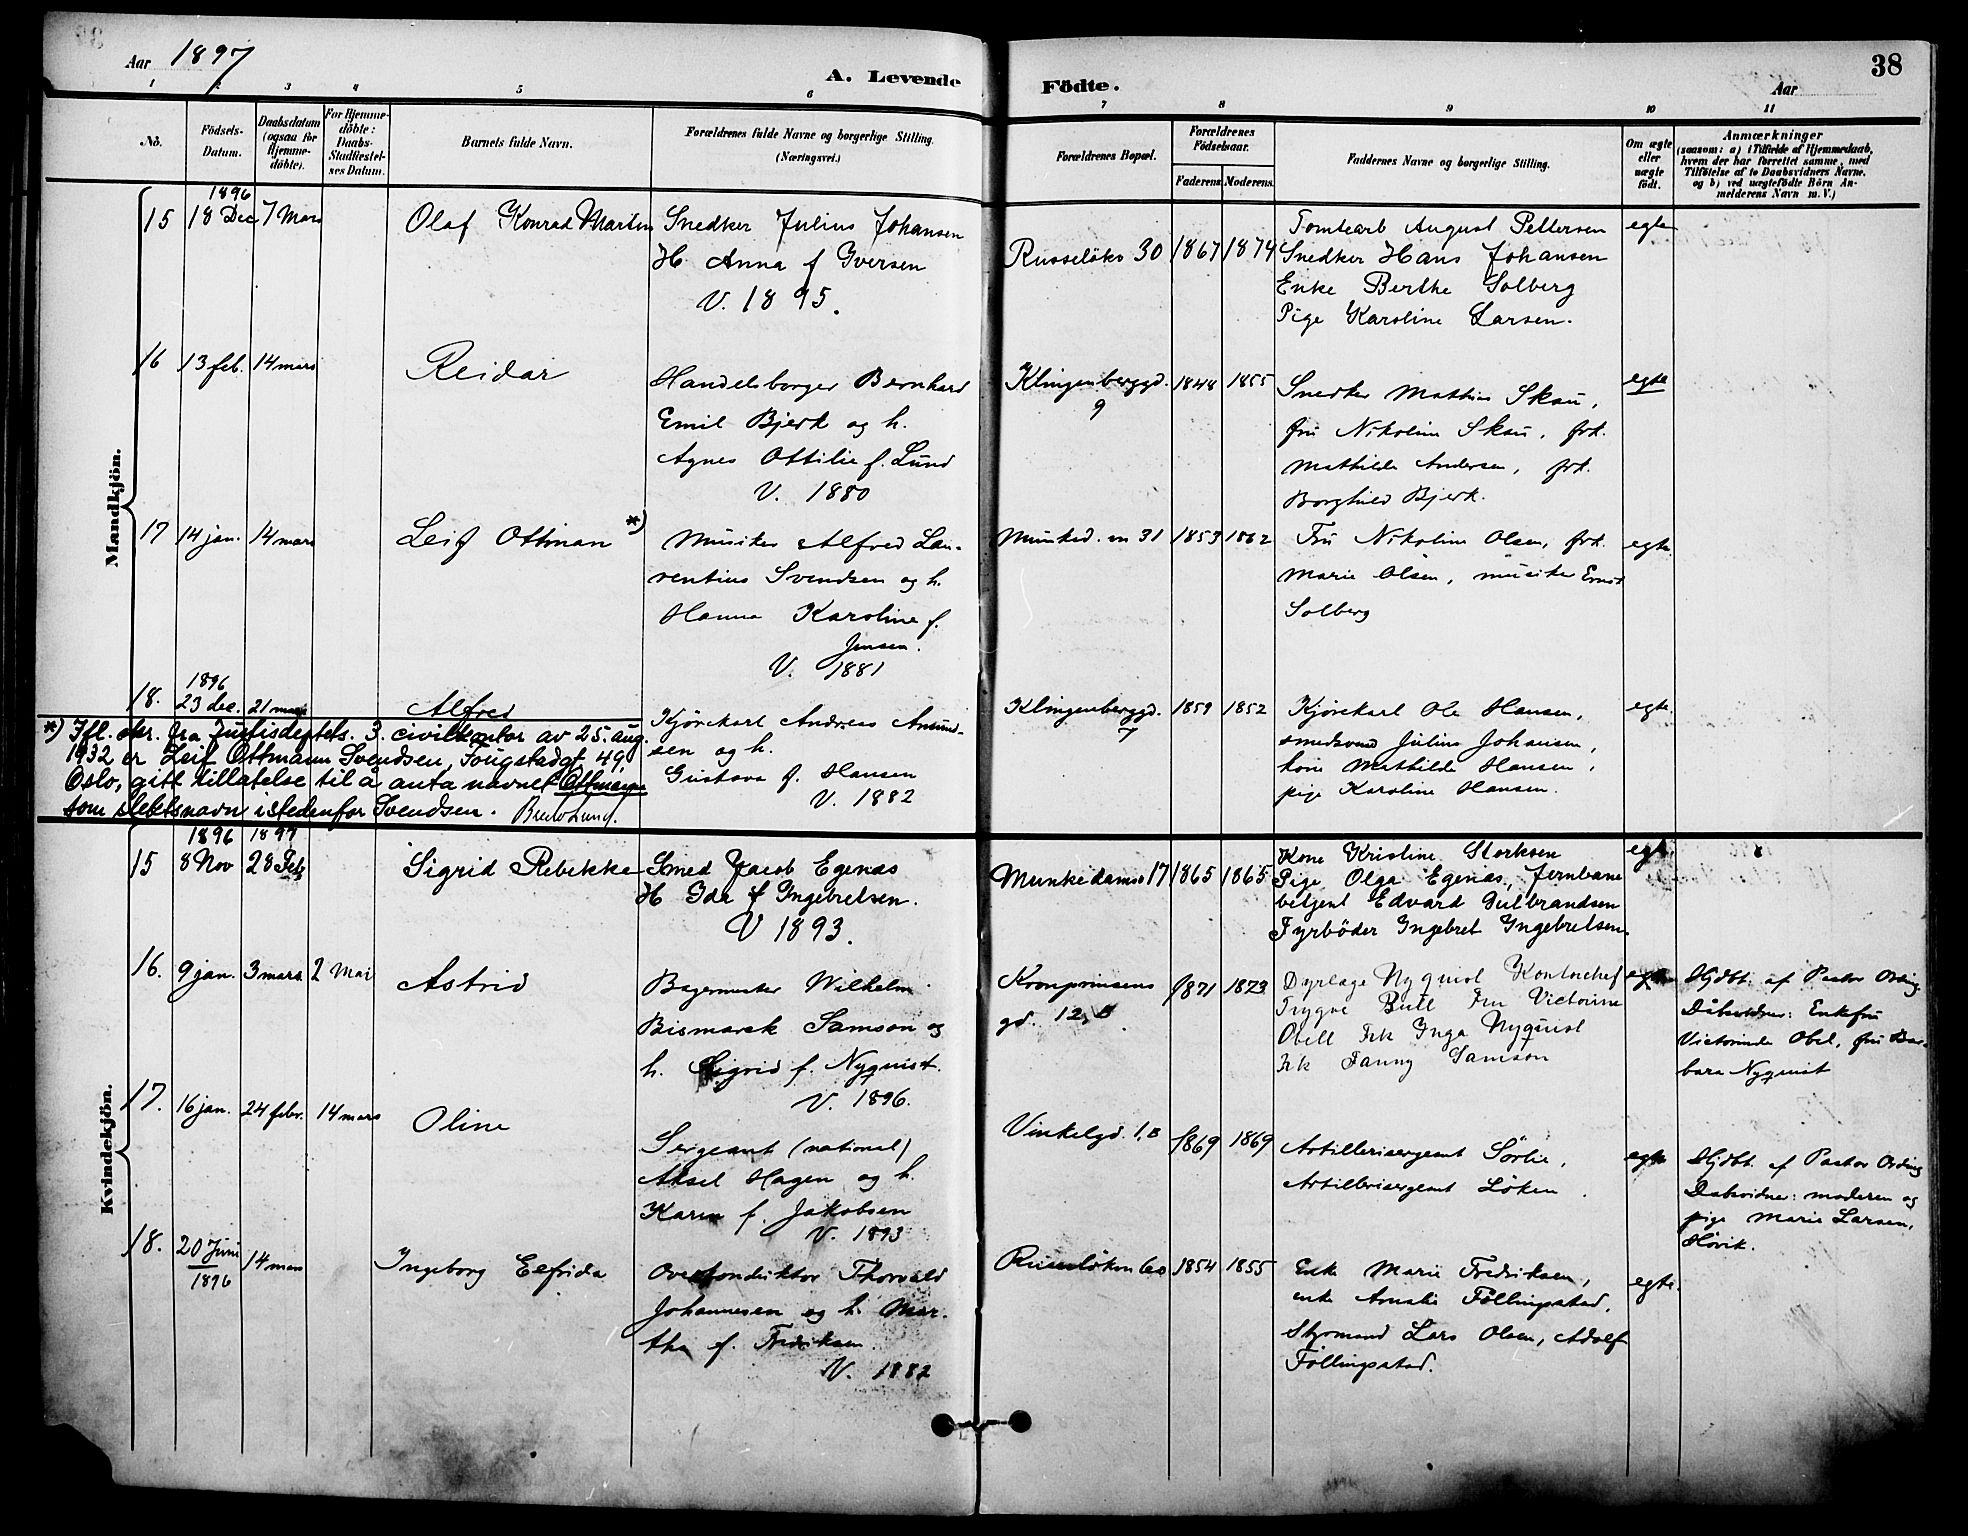 Aar 1897
A. Levende Födte.
38
Aar
1 2 3 4 5 6 7 8 9 10 11
No.
Födsels-Datum.
Daabsdatum (ogsaa for Hjemmedöbte).
For Hjemmedöbte: Daabs-Stadfæstelses Datum.
Barnets fulde Navn.
Forældrenes fulde Navne og borgerlige Stilling. (Næringsvei.)
Forældrenes Bopæl.
Forældrenes Födselsaar.
Faderens. Moderens.
Faddernes Navne og borgerlige Stilling.
Om ægte eller uægte födt.
Anmærkninger
(saasom: a) i Tilfælde af Hjemmedaab,
hvem der har forrettet samme, med
Tilföielse af to Daabsvidners Navne,
og b) ved uægtefödte Börn An-
melderens Navn m. V.)
Mandkjön.
1896
15 18 Dec 7 Mars Olaf Konrad Martin
Snedker Julius Johansen
H. Anna f Iversen
V. 1895.
Russeløkv 30 1867 1874
Tomtearb August Pettersen
Snedker Hans Johansen
Enke Berthe Solberg
Pige Karoline Larsen.
egte
16 13 feb. 14 mars Reidar
Handelsborger Bernhard
Emil Bjerk og h.
Agnes Ottilie f. Lund
V. 1880
Klingenberggd. 9 1848 1855
Snedker Mathias Skau,
fru Nikoline Skau, frk.
Mathilde Andersen, frk.
Borghild Bjerk.
egte
17 14 jan. 14 mars Leif Ottman *)
Musiker Alfred Lau-
rentius Svendsen og h.
Hanna Karoline f.
Jensen.
V. 1881
Munked. vn 31 1853 1862
Fru Nikoline Olsen, frk.
Marie Olsen, musiker Ernst
Solberg
egte.
1896
18. 23 dec. 21 mars Alfred
Kjørekarl Andreas Amund-
sen og h.
Gustava f. Hansen
V. 1882
Klingenberggd. 7 1859 1852
Kjørekarl Ole Hansen,
smedsvend Julius Johansen,
kone Mathilde Hansen,
pige Karoline Hansen.
egte.
*) Ifl. skr. fra Justisdeptets. 3. civilkontor av 25. aug.
1932 er Leif Ottmann Svendsen, Fougstadgt 49,
Oslo, gitt tillatelse til å anta navnet Ottmann
som slektsnavn istedenfor Svendsen.
Kvindekjön.
1896 1897
15 8 Nov 28 Feb Sigrid Rebekke
Smed Jacob Egenæs
H Ida f Ingebretsen.
V 1893.
Munkedamsv 17 1865 1865
Kone Kristine Storksen
Pige Olga Egenæs, Jernbane
betjent Edvard Gulbrandsen
Fyrbøder Ingebret Ingebretsen.
egte.
16. 9 jan. 3 mars. 2 Mai Astrid
Bagermester Wilhelm
Bismarck Samson og
h. Sigrid f. Nyquist.
V. 1896.
Kronprinsens
gd. 12, B 1871 1873
Dyrlæge Nyquist Kontorchef
Trygve Bull Fru Victorine
Obell Frk Inga Nyquist
Frk Fanny Samson
egte
Hjdbt. af Pastor Ording
Dåbsvidner: Enkefru
Victorinde Obel, fru Bar-
bara Nyquist
17. 16 jan. 24 febr. 14 mars Oline
Sergeant (national)
Aksel Hagen og h.
Karen f. Jakobsen
V. 1893
Vinkelgd. 1, B 1869 1869
Artillerisergeant Sörlie,
Artillerisergeant Løken.
egte
Hjdbt. af Pastor Ording
Dabsvidner: moderen og
pige Marie Larsen,
Høvik.
18. 20 Juni 1896 14 mars Ingeborg Elfrida
Overkonduktør Thorvald
Johannesen og h. Mar-
tha f. Fredriksen.
V. 1882
Russeløkvn 60 1854 1855
Enke Marie Fredriksen,
enke Amalie Föllingstad,
Styrmand Lars Olsen, Adolf
Föllingstad.
egte.